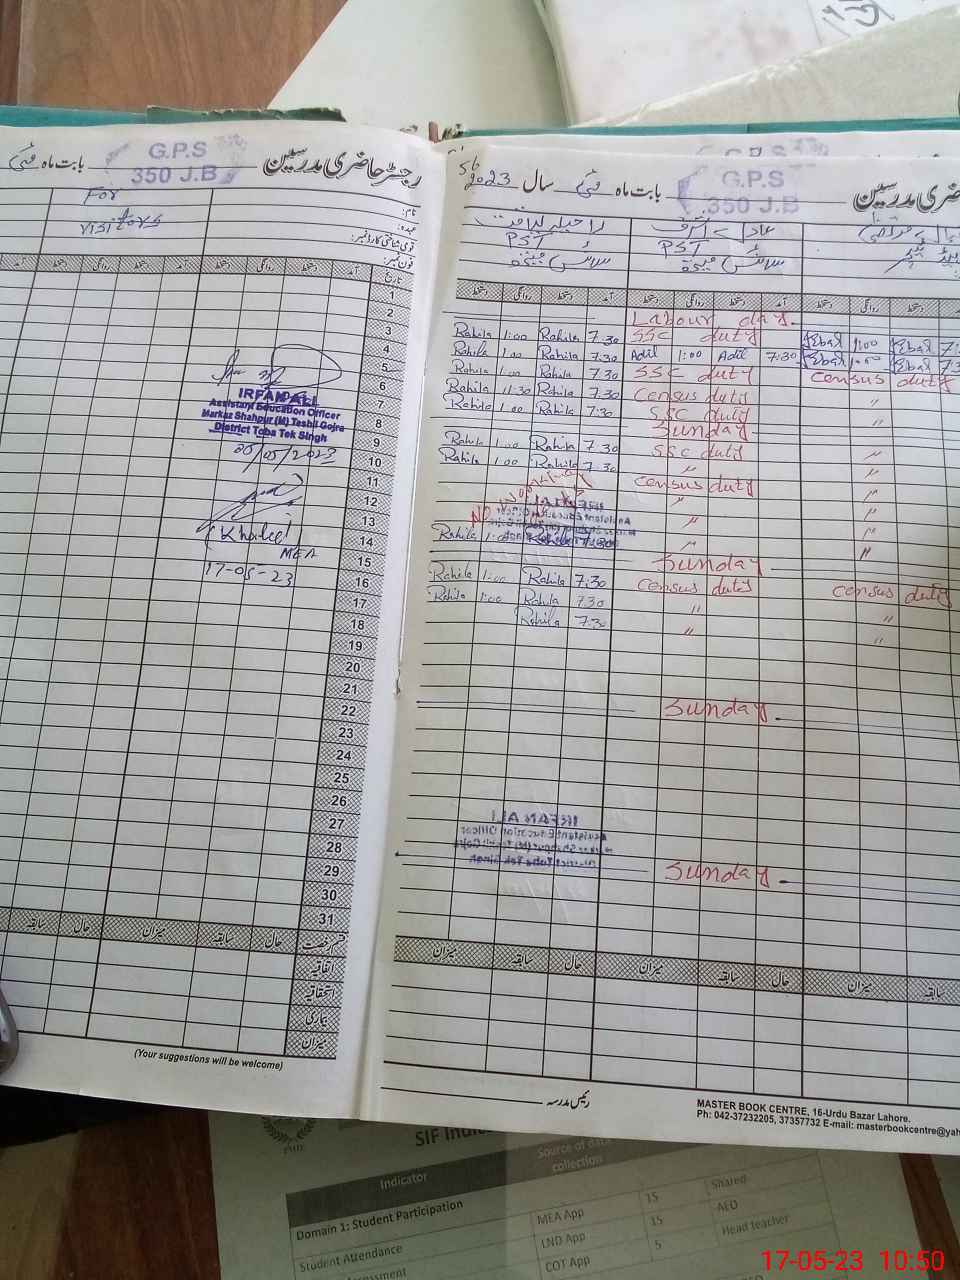 رجسٹر حاضری مدرسین
بابت ماہ مئی
G.P.S
350 J.B
For
Visitors
نام:
عہدہ:
قومی شناختی کارڈ نمبر:
فون نمبر:
تاریخ آمد دستخط روانگی دستخط آمد دستخط روانگی دستخط آمد
1
2
3
4
5
6
7
8
9
10
11
12
13
14
15
16
17
18
19
20
21
22
23
24
25
26
27
28
29
30
31
IRFAN ALI
Assistant Education Officer
Markaz Shahpur (M) Teshil Gojra
District Toba Tek Singh
05/05/2023
(Khalid)
MEA
17-05-23
قسم رخصت حال سابقہ میزان حال سابقہ
اتفاقیہ
استحقاقیہ
بیماری
میزان
(Your suggestions will be welcome)
حاضری مدرسین
بابت ماہ مئی سال 2023
G.P.S
350 J.B
عادل اشرف راحیلہ لیاقت
PST PST
دستخط آمد دستخط روانگی دستخط آمد دستخط روانگی دستخط
Labour day
Rahila 1:00 Rahila 7:30 SSC duty Iqbal 1:00 Iqbal
Rahila 1:00 Rahila 7:30 Adil 1:00 Adil 7:30 Iqbal 1:00 Iqbal
Rahila 1:00 Rahila 7:30 SSC duty Census duty
Rahila 11:30 Rahila 7:30 Census duty "
Rahila 1:00 Rahila 7:30 SSC duty "
Sunday
Rahila 1:00 Rahila 7:30 SSC duty "
Rahila 1:00 Rahila 7:30 " "
Census duty "
" "
" "
Rahila 1:00 Rahila 7:30 " "
Sunday
Rahila 1:00 Rahila 7:30 Census duty Census duty
Rahila 1:00 Rahila 7:30 " "
Rahila 7:30 " "
Sunday
Sunday
حال سابقہ میزان حال سابقہ میزان
رئیس مدرسہ
MASTER BOOK CENTRE, 16-Urdu Bazar Lahore.
Ph: 042-37232205, 37357732 E-mail: masterbookcentre@yah
SIF Indic
Indicator
Source of data
collection
Domain 1: Student Participation
Student Attendance
MEA App 15 Shared
LND App 15 AEO
COT App 5 Head teacher
17-05-23 10:50